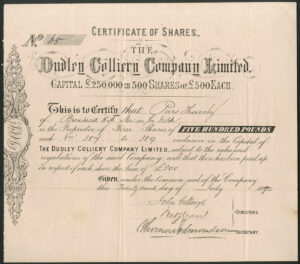 CERTIFICATE OF SHARES.
No. 65
THE
Dudley Colliery Company Limited.
CAPITAL £250,000 IN 500 SHARES OF £500 EACH.
This is to Certify that
of
is the Proprietor of Three Shares of FIVE HUNDRED POUNDS
each No 357 to 359 inclusive in the Capital of
THE DUDLEY COLLIERY COMPANY LIMITED, subject to the rules and
regulations of the said Company, and that there has been paid up
in respect of each Share the Sum of £500
Given under the Common Seal of the Company
this day of July 1892
John
DIRECTORS.
Thomas
SECRETARY.